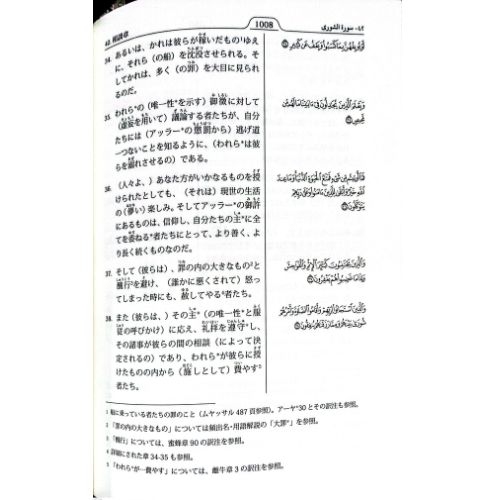 42. 相談章
1008
٤٢- سورة الشورى
34. あるいは、かれは彼らが稼いだもの¹ゆえ
に、それら（の船）を沈没させられる。そ
してかれは、多く（の罪）を大目に見られ
るのだ。
أَوْ يُوبِقْهُنَّ بِمَا كَسَبُوا وَيَعْفُ عَن كَثِيرٍ
35. われら*の（唯一性*を示す）御徴に対して
（虚妄を用いて）議論する者たちが、自分
たちには（アッラー*の懲罰から）逃げ道
一つないことを知るように、（われら*は彼
らを溺れさせるの）である。
وَيَعْلَمَ الَّذِينَ يُجَادِلُونَ فِي ءَايَاتِنَا مَا لَهُم مِّن
مَّحِيصٍ
36. （人々よ、）あなた方がいかなるものを授
けられたとしても、（それは）現世の生活
の（儚い）楽しみ。そしてアッラー*の御許
にあるものは、信仰し、自分たちの主*に全
てを委ねる*者たちにとって、より善く、よ
り長く続くものなのだ。
فَمَا أُوتِيتُم مِّن شَيْءٍ فَمَتَاعُ الْحَيَاةِ الدُّنْيَا وَمَا عِندَ
اللَّهِ خَيْرٌ وَأَبْقَىٰ لِلَّذِينَ ءَامَنُوا وَعَلَىٰ رَبِّهِمْ
يَتَوَكَّلُونَ
37. そして（彼らは）、罪の内の大きなもの²と
醜行³を避け、（誰かに悪くされて）怒っ
てしまった時にも、赦してやる⁴者たち。
وَالَّذِينَ يَجْتَنِبُونَ كَبَائِرَ الْإِثْمِ وَالْفَوَاحِشَ
وَإِذَا مَا غَضِبُوا هُمْ يَغْفِرُونَ
38. また（彼らは、）その主*（の唯一性*と服
従の呼びかけ）に応え、礼拝を遵守*し、
その諸事が彼らの間の相談（によって決
定されるの）であり、われら*が彼らに授
けたものの内から（施しとして）費やす⁵
者たち。
وَالَّذِينَ اسْتَجَابُوا لِرَبِّهِمْ وَأَقَامُوا الصَّلَاةَ وَأَمْرُهُمْ
شُورَىٰ بَيْنَهُمْ وَمِمَّا رَزَقْنَاهُمْ يُنفِقُونَ
1 船に乗っている者たちの罪のこと（ムヤッサル 487 頁参照）。アーヤ*30 とその訳注も参照。
2 「罪の内の大きなもの」については頻出名・用語解説の「大罪*」を参照。
3 「醜行」については、蜜蜂章 90 の訳注を参照。
4 詳細にされた章 34-35 も参照。
5 「われら*が…費やす」については、雌牛章 3 の訳注を参照。